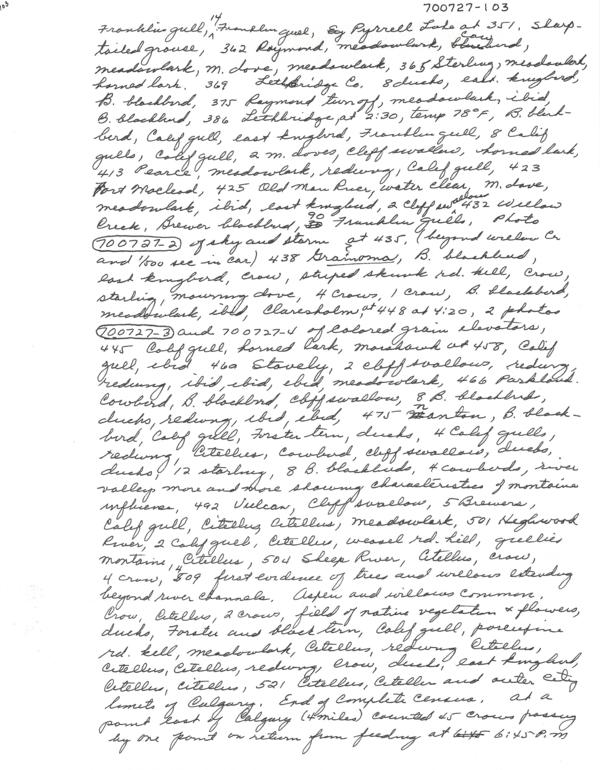 700727-103
Franklin gull, 14 Franklin gull, Tyrrell Lake at 351. Sharp-
tailed grouse, 362 Raymond, meadowlark, cow bird,
meadowlark, M. dove, meadowlark, 365 Sterling, meadowlark,
horned lark. 369 Lethbridge Co. 8 ducks, east. kingbird,
B. blackbrd, 375 Raymond turnoff, meadowlark, ibid,
B. blackbrd, 386 Lethbridge at 2:30, temp 78°F, B. black-
bird, Calif gull, east kingbrd, Franklin gull, 8 Calif
gulls, Calif gull, 2 m. doves, Cliff swallow, horned lark,
413 Pearce, meadowlark, redwing, Calif gull, 423
Fort Macleod, 425 Old Man River, water clear, M. dove,
meadowlark, ibid, east kingbird, 2 Cliff swallow 432 Willow
Creek, Brewer blackbird, 90 Franklin gulls, Photo
700727-2 of sky and storm at 435, (beyond willow Cr
and 1/500 sec in car) 438 Grainoma, B. blackbird,
east kingbird, Crow, striped skunk rd. kill, Crow,
starling, mourning dove, 4 crows, 1 crow, B. blackbird,
meadowlark, ibid, Claresholm, at 448 at 4:20, 2 photos
700727-3 and 700727-4 of colored grain elevators,
445 Calif gull, horned lark, at 458, Calif
gull, ibid 460 Stavely, 2 cliff swallows, redwing,
redwing, ibid, ibid, ibid, meadowlark, 466 Parkland.
Cowbird, B. blackbrd, cliff swallow, 8 B. blackbrd,
ducks, redwing, ibid, ibid, 475 Nanton, B. black-
bird, Calif gull, Forster tern, ducks, 4 Calif gulls,
redwing, Citellus, Cowbird, cliff swallows, ducks,
ducks, 12 starling, 8 B. blackbirds, 4 cowbirds, river
valley more and more showing characteristics of montaine
influense, 492 Vulcan, Cliff swallow, 5 Brewers,
Calif gull, Citellus, Citellus, meadowlark, 501 Highwood
River, 2 Calif gull, Citellus, weasel rd. kill,
montaine, 14 Citellus, 504 Sheep River, Citellus, crow,
4 crow, 509 first evidence of trees and willows extending
beyond river channels. Aspen and willows common.
Crow, Citellus, 2 crows, field of native vegetation & flowers,
ducks, Forster and black tern, Calif gull, porcupine
rd. kill, meadowlark, Citellus, redwing Citellus,
Citellus, Citellus, redwing, Crow, ducks, east kingbird,
Citellus, Citellus, 521 Citellus, Citellus and outer city
limits of Calgary. End of Complete Census. At a
point east of Calgary (4 miles) counted 45 crows passing
by one point on return from feeding at 6:45 6:45 P.M